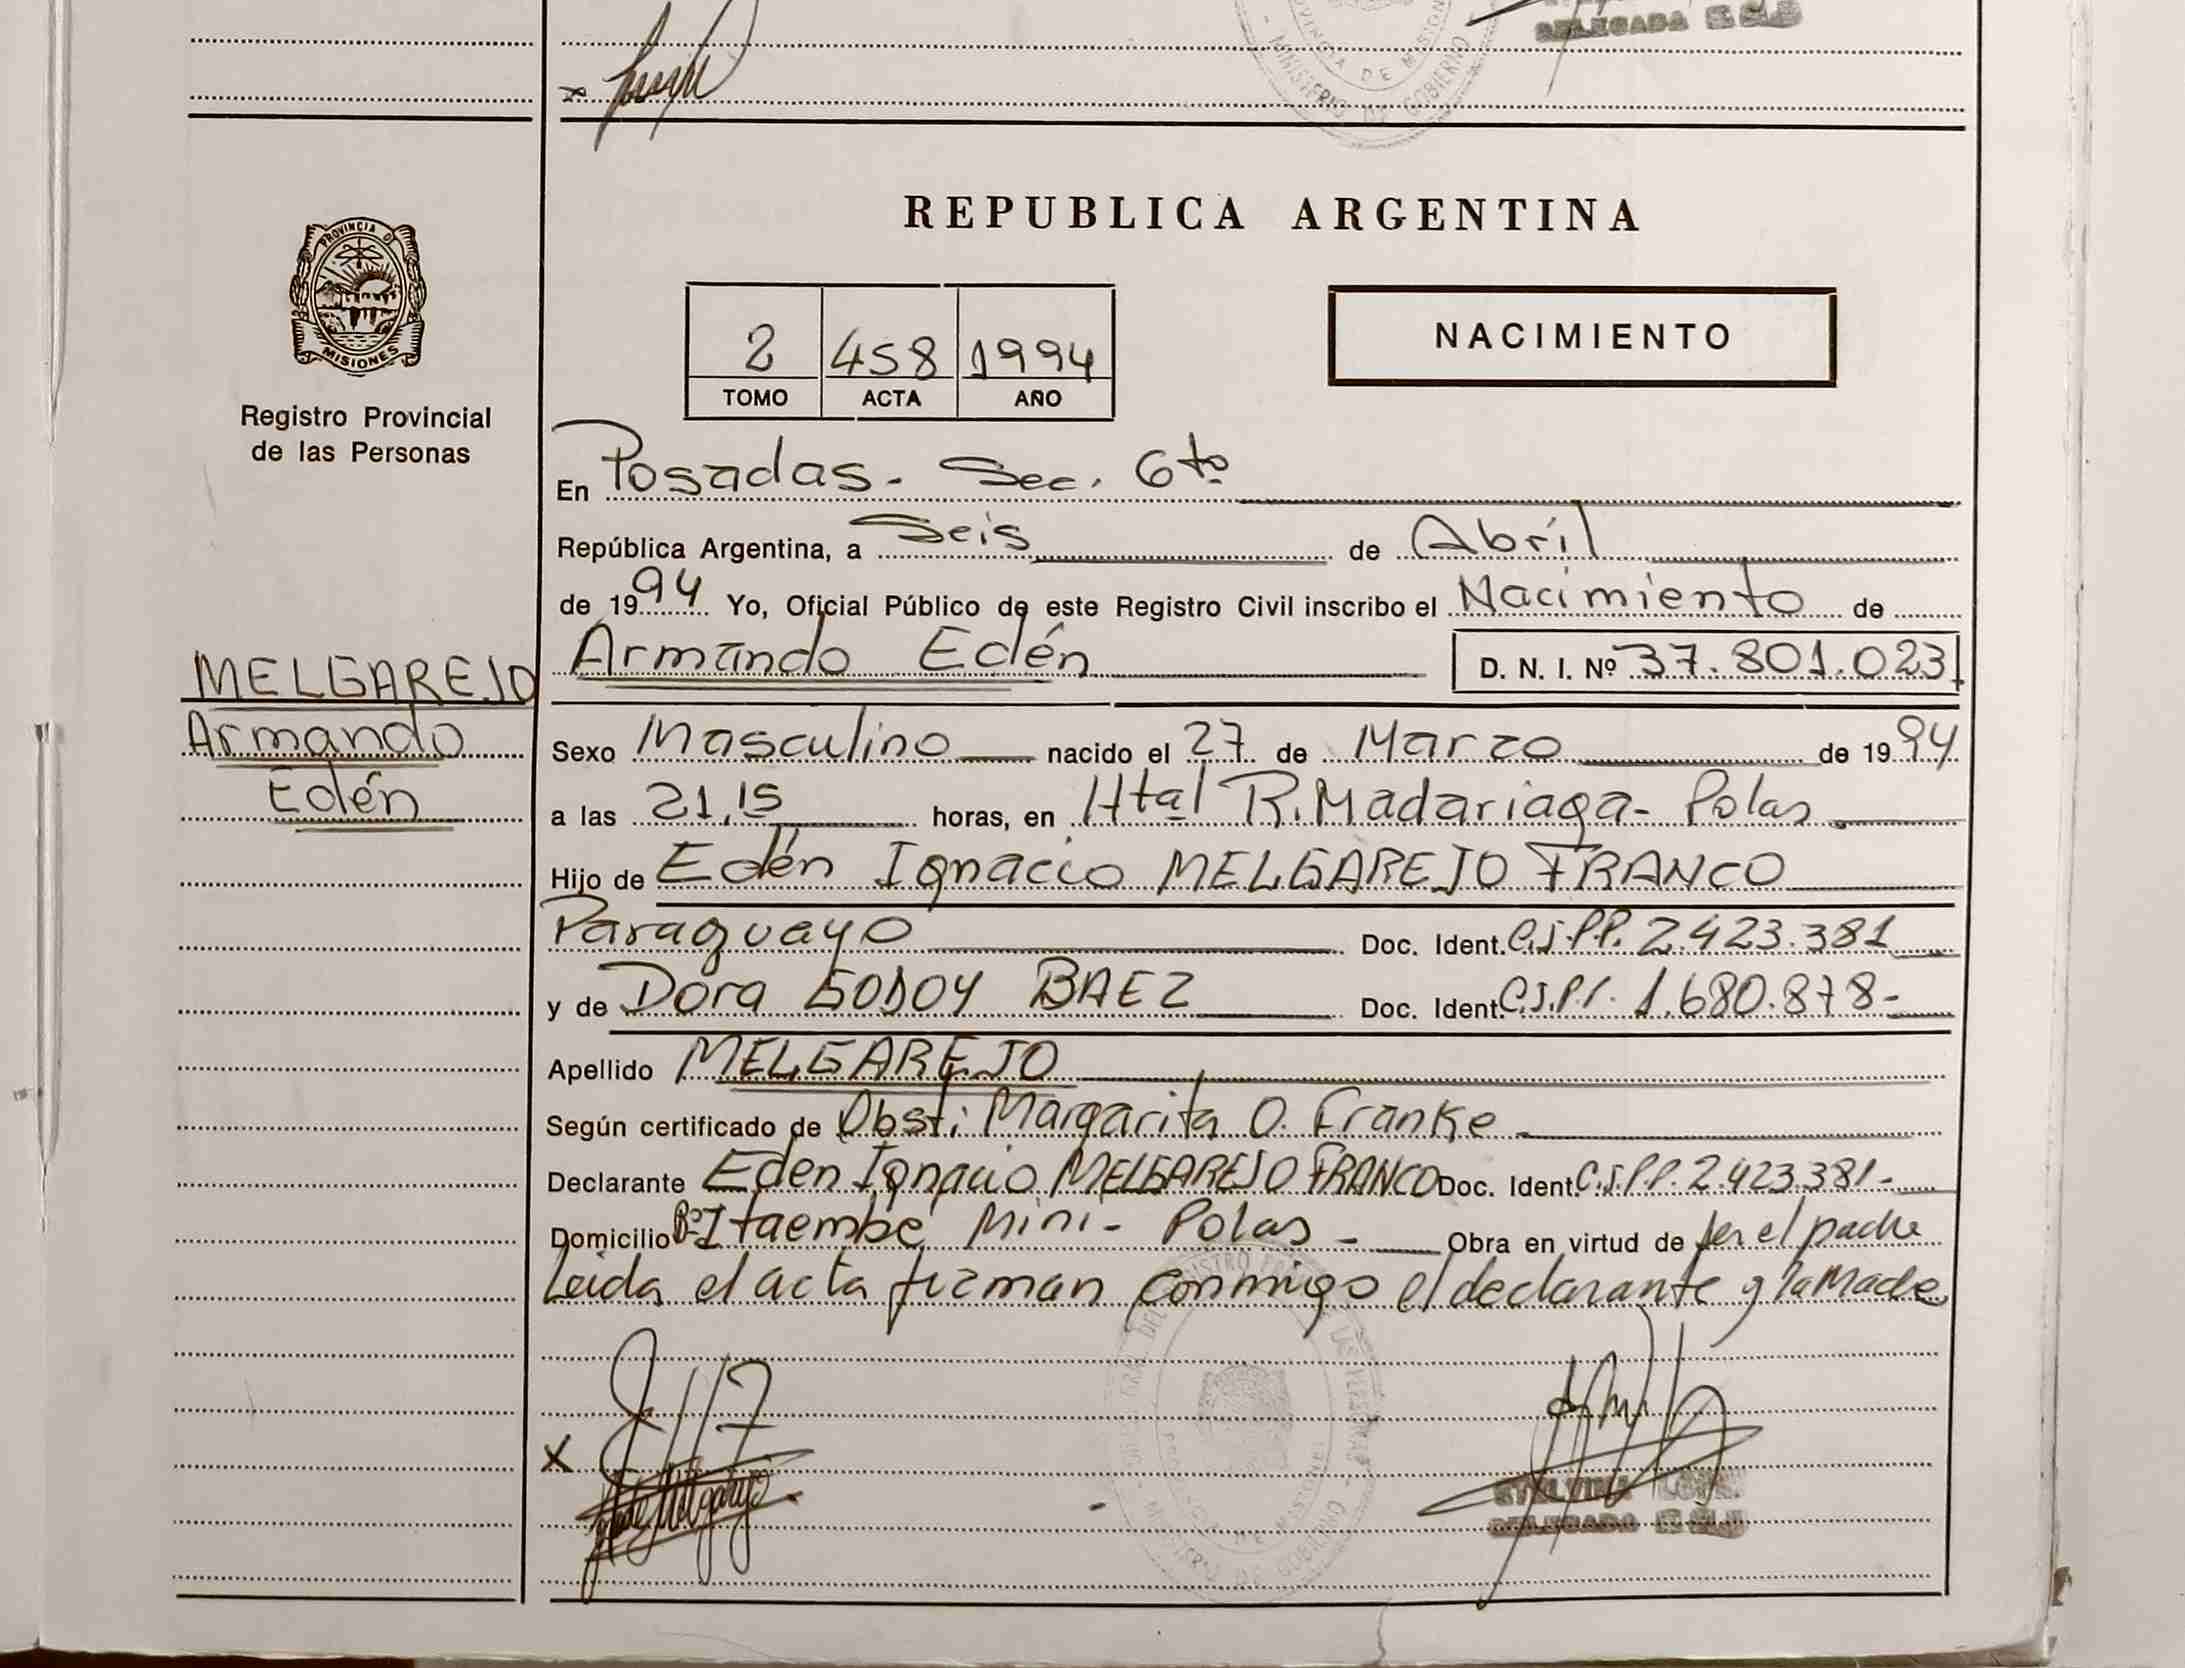 PROVINCIA DE MISIONES
MINISTERIO DE GOBIERNO
DELEGADA
REPUBLICA ARGENTINA
PROVINCIA DE
MISIONES
Registro Provincial
de las Personas
2 458 1994
TOMO ACTA AÑO
NACIMIENTO
En Posadas - Sec. 6ta
República Argentina, a Seis de Abríl
de 1994 Yo, Oficial Público de este Registro Civil inscribo el Nacimiento de
Armando Edén D. N. I. Nº 37.801.023
MELGAREJO
Armando
Edén
Sexo Masculino nacido el 27 de Marzo de 1994
a las 21,15 horas, en Htal R. Madariaga - Pdas
Hijo de Edén Ignacio MELGAREJO FRANCO
Paraguayo Doc. Ident. C.I.P.P. 2.423.381
y de Dora GODOY BAEZ Doc. Ident. C.I.P.P. 1.680.878-
Apellido MELGAREJO
Según certificado de Obst: Margarita O. Franke
Declarante Eden Ignacio MELGAREJO FRANCO Doc. Ident. C.I.P.P. 2.423.381-
Domicilio Bº Itaembé Mini - Pdas - Obra en virtud de ser el padre
Leida el acta firman conmigo el declarante y la Madre
MINISTERIO DE GOBIERNO
DELEGADA